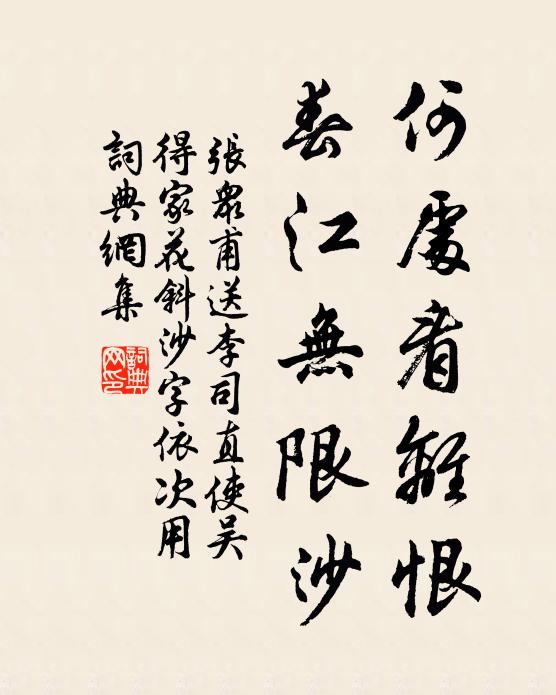 何處看離恨
春江無限沙
張眾甫送李司直使吳
得家花斜沙字依次用
詞典網集
詞典網印